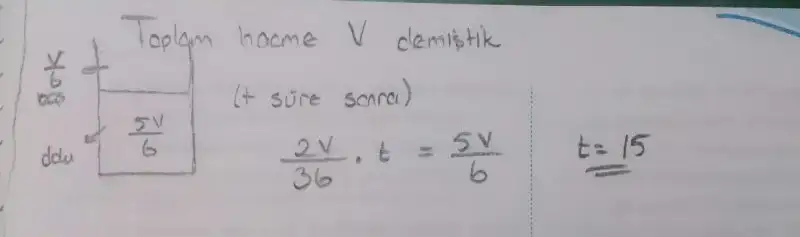 Toplam hacme V demiştik
V/6
boş
(t süre sonra)
5V/6
dolu
2V/36 . t = 5V/6
t = 15